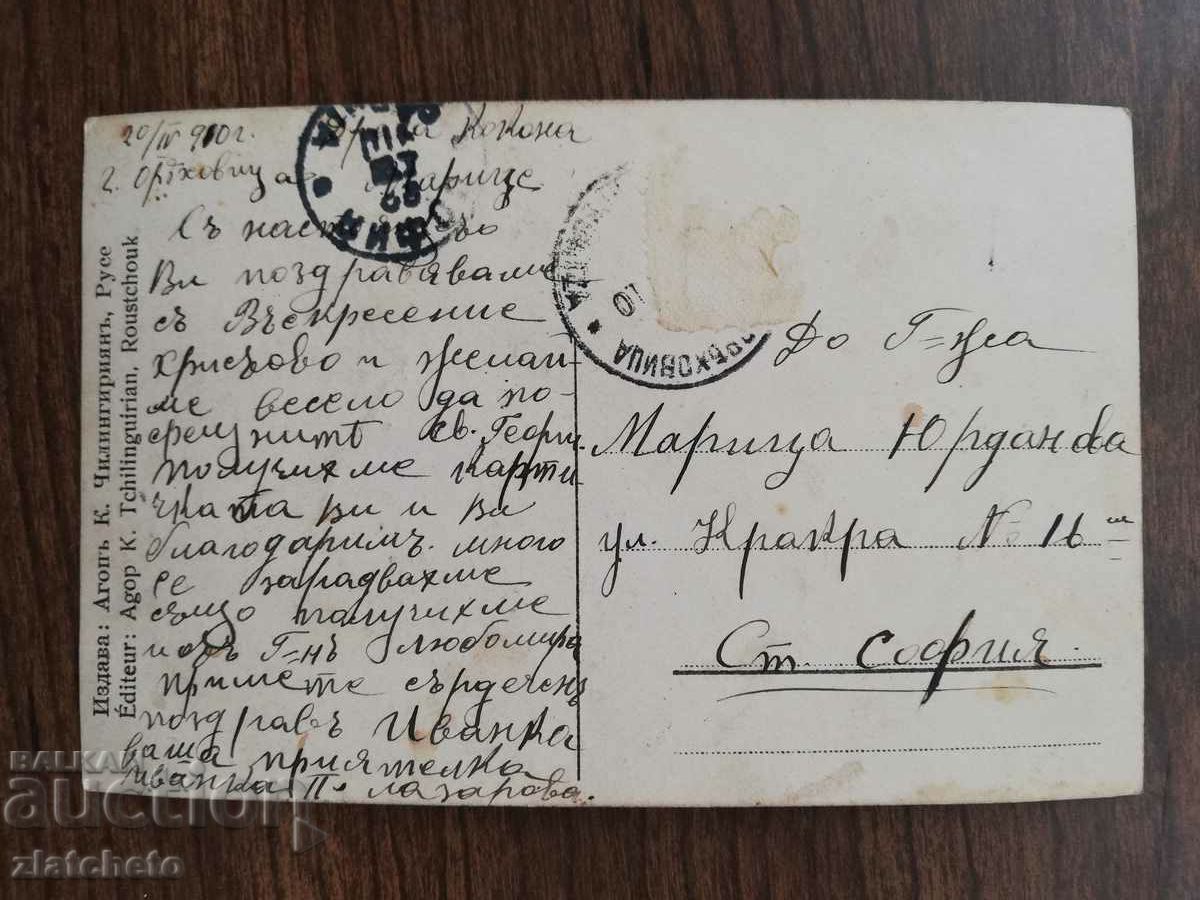 20/IV 910 г.
Кокона
г. Орѣховица
Марице
Съ настоящьо
Ви поздравяваме
съ Въскресение
христово и желаи-
ме весело да по-
срещнитѣ св. Георги
получихме карти
чката ви и ви
благодаримъ. много
се зарадвахме
също получихме
и отъ Г-нъ Любомира
приме те сърдеченъ
поздравъ Иванка
ваша приятелка
Иванка П. Лазарова.
До Г-жа
Марица Юрданова
ул. Кракра № 16
Ст. София.
ОРѢХОВИЦА
10
Издава: Агопъ К. Чилингириянъ, Русе
Éditeur: Agop K. Tchilinguirian, Roustchouk
BALKAN
auction
zlatcheto